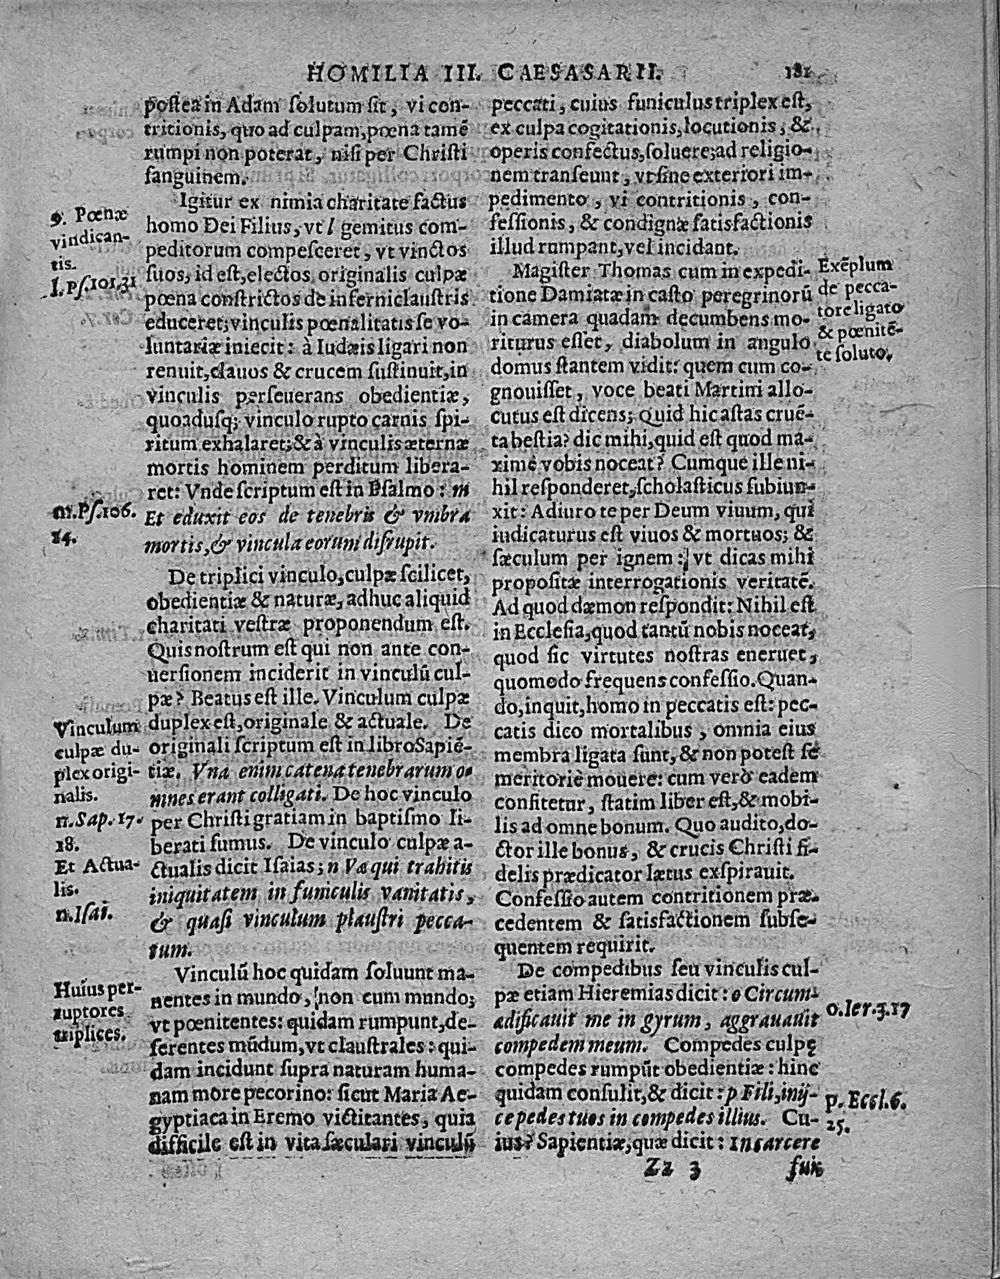 HOMILIA III. CAESASARII. 181
postea in Adam solutum sit, vi con-
tritionis, quo ad culpam, pœna tamē
rumpi non poterat, nisi per Christi
sanguinem.
Igitur ex nimia charitate factus
homo Dei Filius, vt l gemitus com-
peditorum compesceret, vt vinctos
suos, id est, electos, originalis culpæ
pœna constrictos de inferni claustris
educeret; vinculis pœnalitatis se vo-
luntariæ iniecit: à Iudæis ligari non
renuit, clauos & crucem sustinuit, in
vinculis perseuerans obedientiæ,
quoadusq; vinculo rupto carnis spi-
ritum exhalaret; & à vinculis æternæ
mortis hominem perditum libera-
ret: Vnde scriptum est in Psalmo: m
Et eduxit eos de tenebris & vmbra
mortis, & vincula eorum disrupit.
De triplici vinculo, culpæ scilicet,
obedientiæ & naturæ, adhuc aliquid
charitati vestræ proponendum est.
Quis nostrum est qui non ante con-
uersionem inciderit in vinculū cul-
pæ? Beatus est ille. Vinculum culpæ
duplex est, originale & actuale. De
originali scriptum est in libro Sapiē-
tiæ. Vna enim catena tenebrarum o-
mnes erant colligati. De hoc vinculo
per Christi gratiam in baptismo li-
berati sumus. De vinculo culpæ a-
ctualis dicit Isaias; n Væ qui trahitis
iniquitatem in funiculis vanitatis,
& quasi vinculum plaustri pecca-
tum.
Vinculū hoc quidam soluunt ma-
nentes in mundo, non cum mundo;
vt pœnitentes: quidam rumpunt, de-
serentes mūdum, vt claustrales: qui-
dam incidunt supra naturam huma-
nam more pecorino: sicut Maria Ae-
gyptiaca in Eremo victitantes, quia
difficile est in vita sæculari vinculū
9. Pœnæ
vindican-
tis.
l. Ps. 101. 21
m. Ps. 106.
14.
Vinculum
culpæ du-
plex origi-
nalis.
n. Sap. 17.
18.
Et Actua-
lis.
n. Isai.
Huius per-
ruptores
triplices.
peccati, cuius funiculus triplex est,
ex culpa cogitationis, locutionis, &
operis confectus, soluere; ad religio-
nem transeunt, vt sine exteriori im-
pedimento, vi contritionis, con-
fessionis, & condignæ satisfactionis
illud rumpant, vel incidant.
Magister Thomas cum in expedi-
tione Damiatæ in casto peregrinorū
in camera quadam decumbens mo-
riturus esset, diabolum in angulo
domus stantem vidit: quem cum co-
gnouisset, voce beati Martini allo-
cutus est dicens; Quid hic astas cruē-
ta bestia? dic mihi, quid est quod ma-
ximè vobis noceat? Cumque ille ni-
hil responderet, scholasticus subiun-
xit: Adiuro te per Deum viuum, qui
iudicaturus est viuos & mortuos; &
sæculum per ignem: vt dicas mihi
propositæ interrogationis veritatē.
Ad quod dæmon respondit: Nihil est
in Ecclesia, quod tantū nobis noceat,
quod sic virtutes nostras eneruet,
quomodo frequens confessio. Quan-
do, inquit, homo in peccatis est: pec-
catis dico mortalibus, omnia eius
membra ligata sunt, & non potest se
meritoriè mouere: cum verò eadem
confitetur, statim liber est, & mobi-
lis ad omne bonum. Quo audito, do-
ctor ille bonus, & crucis Christi fi-
delis prædicator lætus exspirauit.
Confessio autem contritionem præ-
cedentem & satisfactionem subse-
quentem requirit.
De compedibus seu vinculis cul-
pæ etiam Hieremias dicit: o Circum-
ædificauit me in gyrum, aggrauauit
compedem meum. Compedes culpę
compedes rumpūt obedientiæ: hinc
quidam consulit, & dicit: p Fili, inij-
ce pedes tuos in compedes illius. Cu-
ius? Sapientiæ, quæ dicit: In carcere
Exēplum
de pecca-
tore ligato
& pœnitē-
te soluto.
o. Ier. 3. 17
p. Eccl. 6.
25.
Zz 3 fui